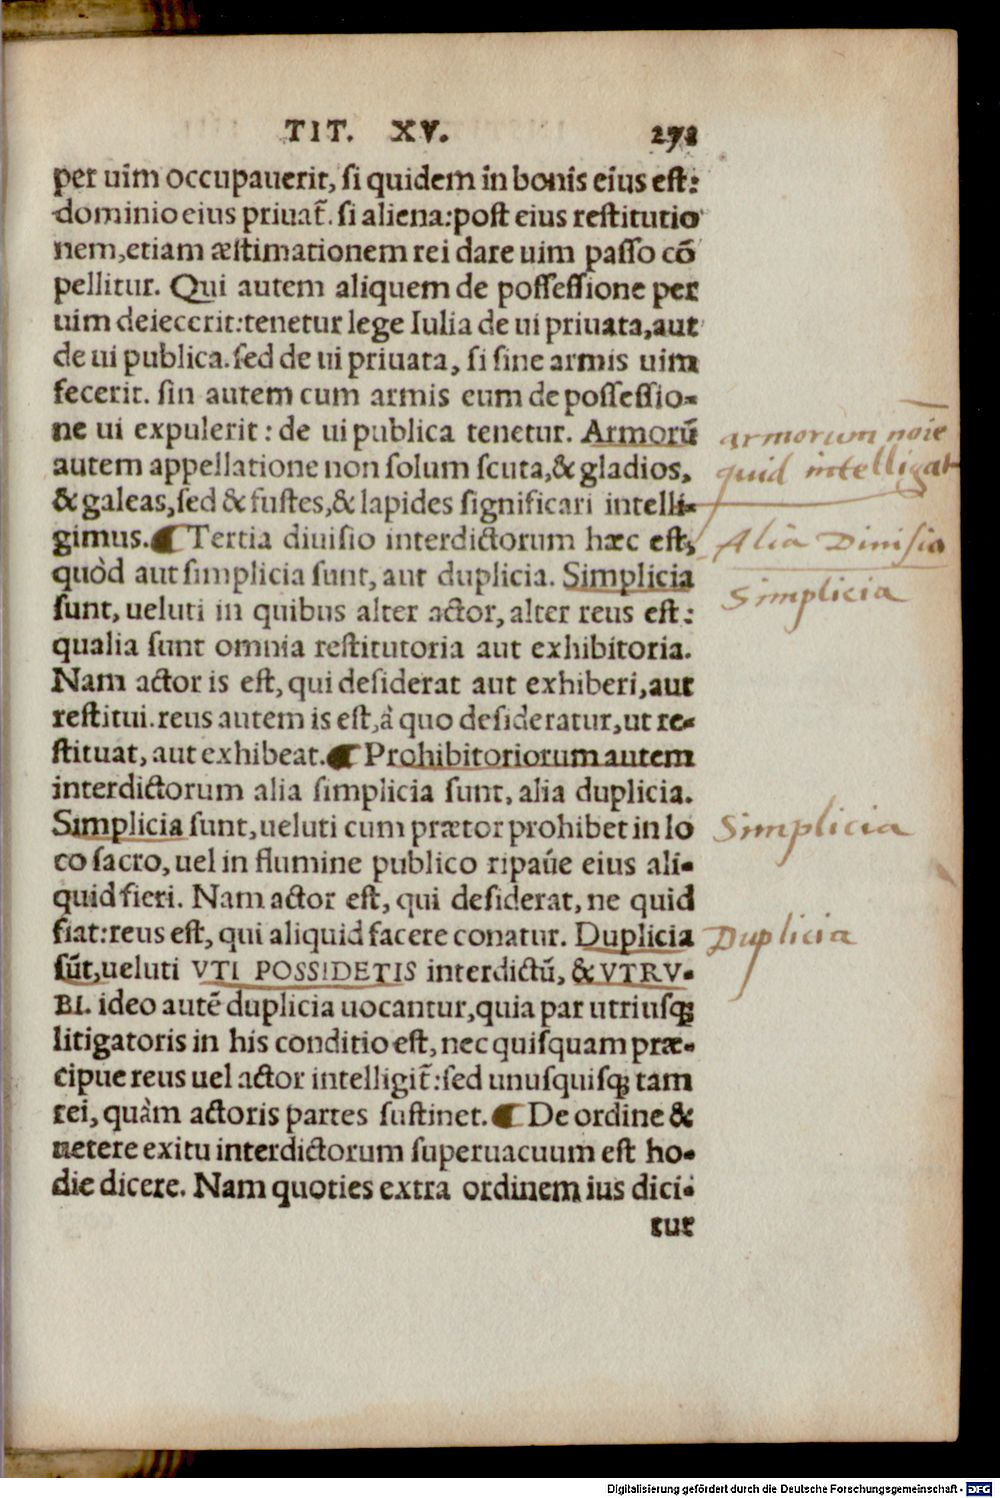 TIT. XV. 272
per uim occupauerit, si quidem in bonis eius est:
dominio eius priuat̃. si aliena: post eius restitutio
nem, etiam æstimationem rei dare uim passo cõ
pellitur. Qui autem aliquem de possessione per
uim deiecerit: tenetur lege Iulia de ui priuata, aut
de ui publica. sed de ui priuata, si sine armis uim
fecerit. sin autem cum armis eum de possessio-
ne ui expulerit: de ui publica tenetur. Armorũ
autem appellatione non solum scuta, & gladios,
& galeas, sed & fustes, & lapides significari intelli-
gimus. ¶ Tertia diuisio interdictorum hæc est,
quòd aut simplicia sunt, aut duplicia. Simplicia
sunt, ueluti in quibus alter actor, alter reus est:
qualia sunt omnia restitutoria aut exhibitoria.
Nam actor is est, qui desiderat aut exhiberi, aut
restitui. reus autem is est, à quo desideratur, ut re-
stituat, aut exhibeat. ¶ Prohibitoriorum autem
interdictorum alia simplicia sunt, alia duplicia.
Simplicia sunt, ueluti cum prætor prohibet in lo
co sacro, uel in flumine publico ripaúe eius ali-
quid fieri. Nam actor est, qui desiderat, ne quid
fiat: reus est, qui aliquid facere conatur. Duplicia
sũt, ueluti VTI POSSIDETIS interdictũ, & VTRV-
BI. ideo autẽ duplicia uocantur, quia par utriusq;
litigatoris in his conditio est, nec quisquam præ-
cipue reus uel actor intelligit̃: sed unusquisq; tam
rei, quàm actoris partes sustinet. ¶ De ordine &
uetere exitu interdictorum superuacuum est ho-
die dicere. Nam quoties extra ordinem ius dici-
tur
armorum nõie
quid intelligat
Alia Diuisio
Simplicia
Simplicia
Duplicia
Digitalisierung gefördert durch die Deutsche Forschungsgemeinschaft - DFG